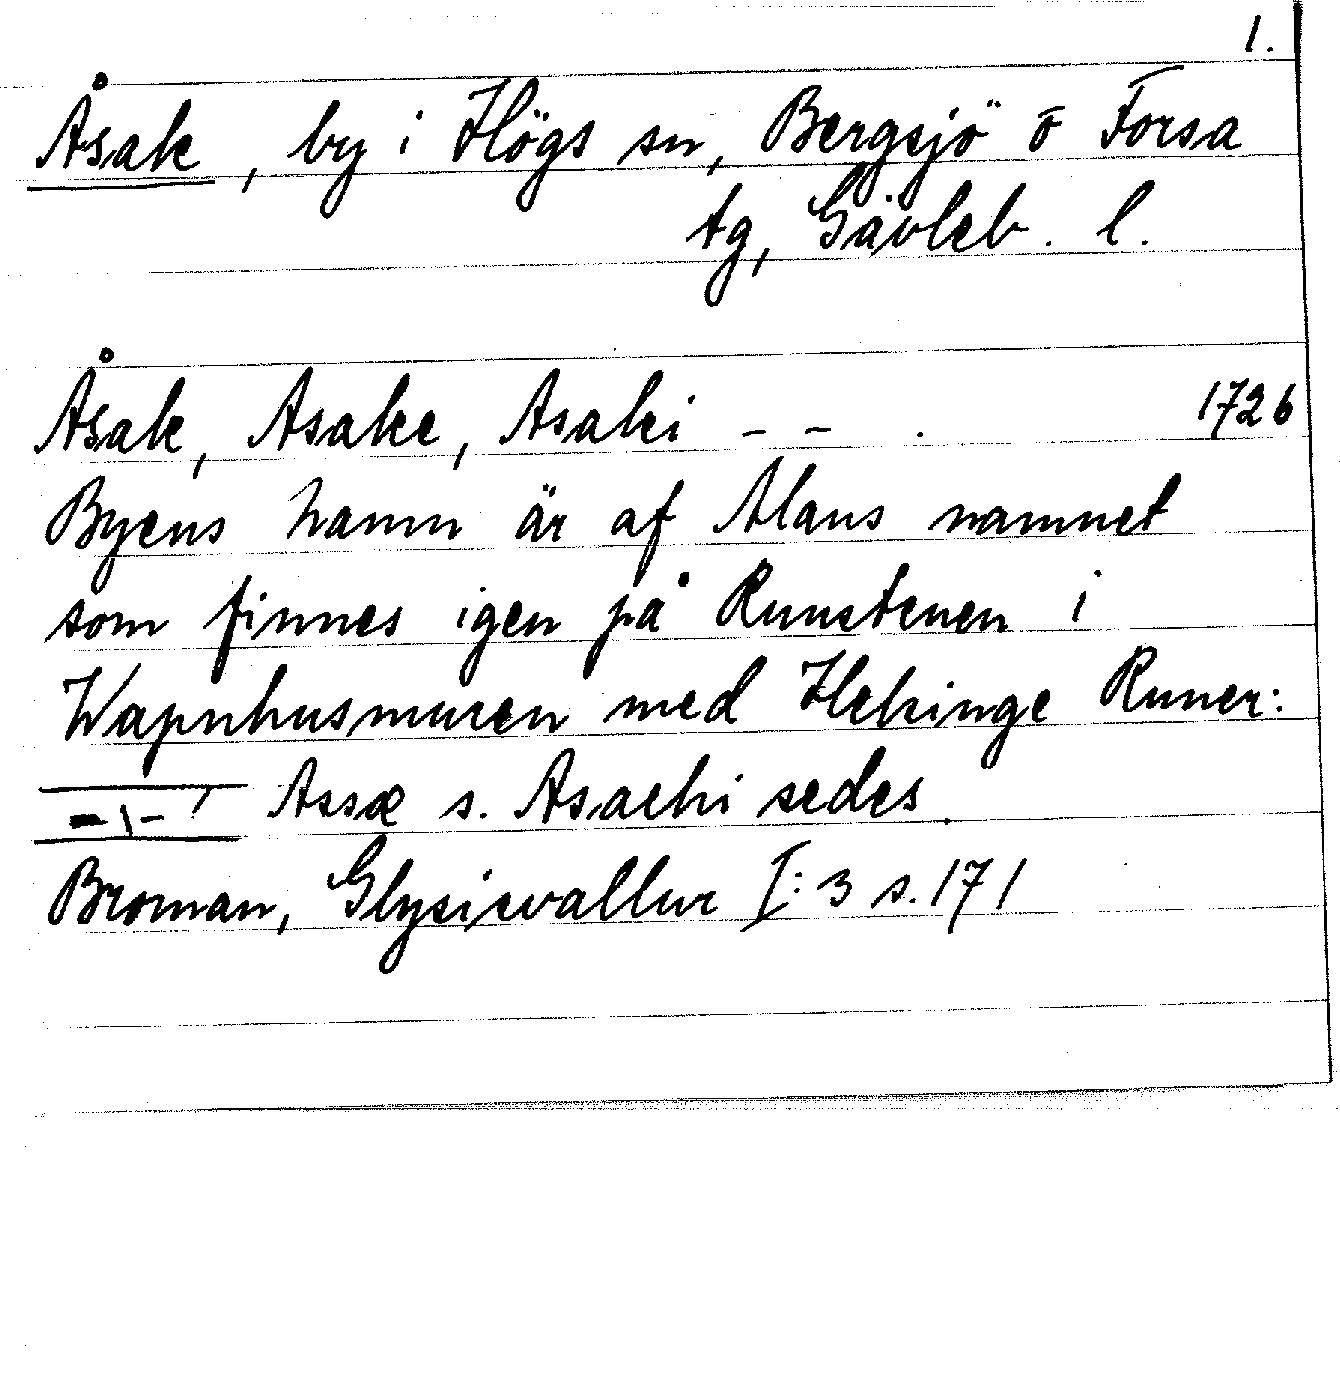 1.
Åsak, by i Högs sn, Bergsjö o Forsa
tg, Gävleb. l.
Åsak, Asake, Asaki - - . 1726
Byens hamn är af Alans namnet
som finnes igen på Runstenen i
Wapnhusmuren med Helsinge Runer:
Assæ s. Asachi sedes.
Broman, Glysisvallur I:3 s. 171